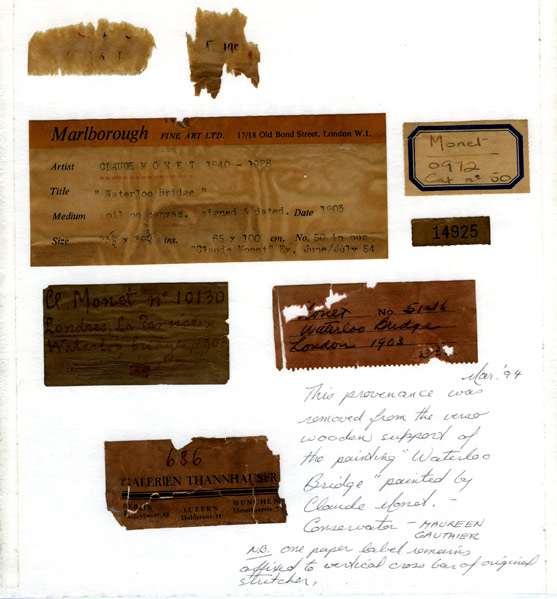 Marlborough FINE ART LTD. 17/18 Old Bond Street, London W.1.
Artist CLAUDE MONET 1840 - 1926
Title "Waterloo bridge"
Medium oil on canvas. signed & dated. Date 1903
Size ins. 65 x 100 cm. No. 50 in our
"Claude Monet" Ex. June/July 54
Monet
0972
Cat nº 50
14925
Cl. Monet nº 10130
Londres, La
Waterloo bridge, 1903
Monet No
Waterloo Bridge
London 1903
686
GALERIEN THANNHAUSER
BERLIN LUZERN MÜNCHEN
Mar. '94
This provenance was
removed from the verso
wooden support of
the painting "Waterloo
Bridge" painted by
Claude Monet. -
Conservator - MAUREEN
GAUTHIER
N.B. one paper label remains
affixed to vertical cross bar of original
stretcher.